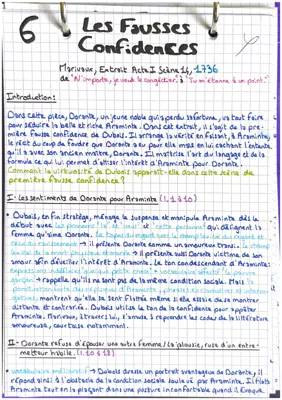 6
Les Fausses
Confidences
Marivaux, Extrait Acte I Scène 14, 1736
de "N'importe, je veux le congédier." à "Tu m'étonne à un point."
Introduction:
Dans cette pièce, Dorante, un jeune noble qui a perdu sa fortune, va tout faire
pour séduire la belle et riche Araminte. Dans cet extrait, il s'agit de la pre-
mière fausse confidence de Dubois. Il arrange la vérité en faisant, à Araminte,
le récit du coup de foudre que Dorante a eu pour elle mais en lui cachant l'entente
qu'il a avec son ancien maître, Dorante. Il maîtrise l'art du langage et de la
formule ce qui lui permet d'attiser l'intérêt d'Araminte pour Dorante.
Comment la virtuosité de Dubois apparaît-elle dans cette scène de
première fausse confidence?
I - Les sentiments de Dorante pour Araminte (l. 1 à 10)
• Dubois, en fin stratège, ménage le suspense et manipule Araminte dès le
début avec les pronoms "la" et "cette personne" qui désignent la
femme qu'aime Dorante.
→ il présente Dorante comme un amoureux transi.
→ il présente aussi Dorante victime de son
amour afin d'éveiller l'intérêt d'Araminte. Le ton condescendant d'Araminte:
→ rappelle qu'ils ne sont pas de la même condition sociale. Mais
montrent qu'elle se sent flattée même si elle essaie de se montrer
distante et contrariée. Dubois utilise le ton de la confidence pour appâter
Araminte. Marivaux, à travers lui, s'amuse à reprendre les codes de la littérature
amoureuse, courtoise notamment.
II - Dorante refuse d'épouser une autre femme / la jalousie, ruse d'un entre-
metteur habile. (l. 10 à 18)
• vocabulaire mélioratif → Dubois dresse un portrait avantageux de Dorante, il
répond ainsi à l'obstacle de la condition sociale soulevé par Araminte. Il flatte
Araminte tout en la plaçant dans une posture inconfortable quand il évoque